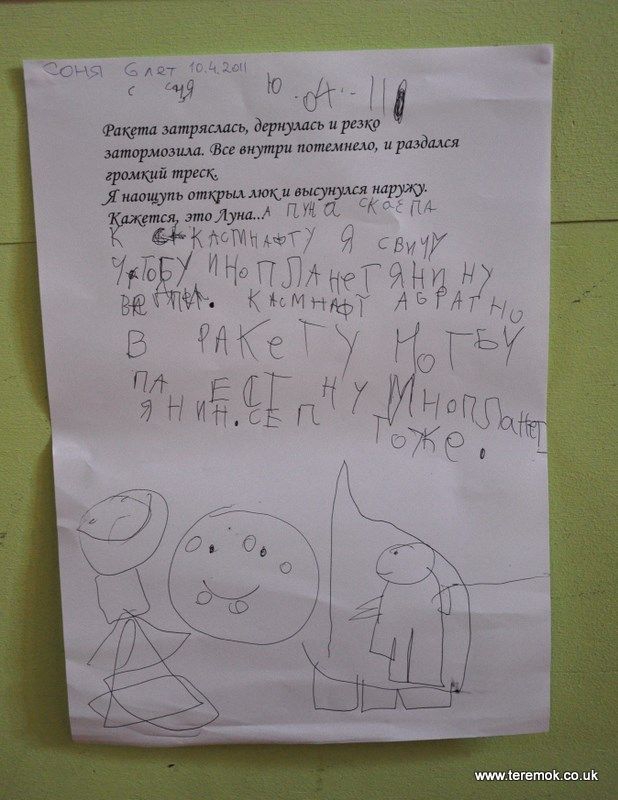 СОНЯ 6 лет 10.4.2011
Ю .04.. 11
Ракета затряслась, дернулась и резко
затормозила. Все внутри потемнело, и раздался
громкий треск.
Я наощупь открыл люк и высунулся наружу.
Кажется, это Луна... А ПУНА СКАЕПА
К КАСМНАФТУ Я СВИЧУ
ЧТОБУ ИНОПЛАНеТЯНИНУ
КАСМНАФТ АБРАТНО
В РАКеТУ ЧТОБУ
ПАЕСТ НУ ИНОПЛАНеТ
ЯНИН.СЕП ТОЖе.
www.teremok.co.uk